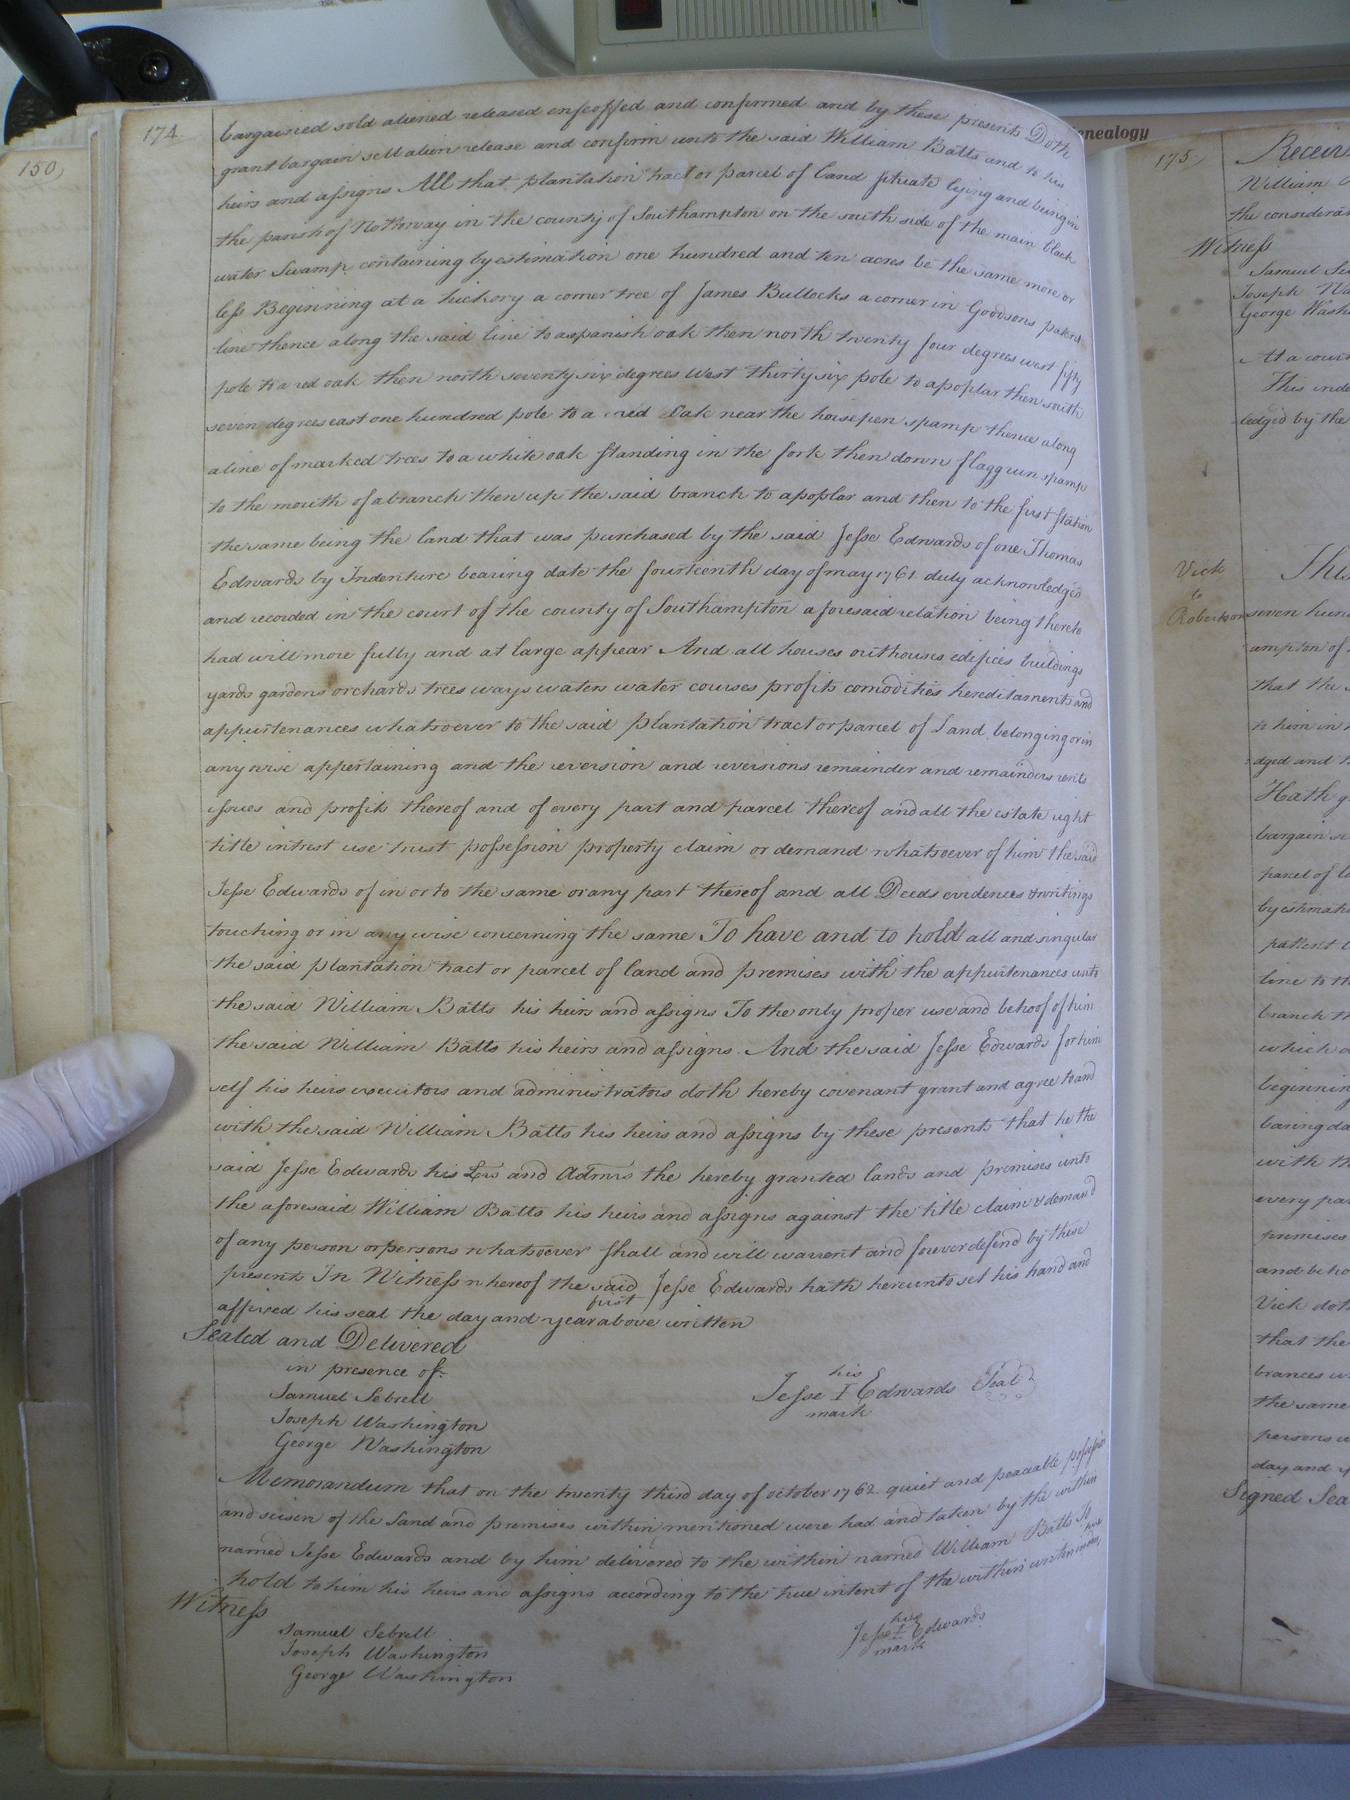 174
bargained sold aliened released enfeoffed and confirmed and by these presents Doth
grant bargain sell alien release and confirm unto the said William Batts and to his
heirs and assigns All that plantation tract or parcel of Land situate lying and being in
the parish of Nottoway in the county of Southampton on the south side of the main black
water Swamp containing by estimation one hundred and ten acres be the same more or
less Beginning at a hickory a corner tree of James Bullocks a corner in Goodsons patent
line thence along the said line to a spanish oak then north twenty four degrees west fifty
pole to a red oak then north seventy six degrees West thirty six pole to a poplar then south
seven degrees east one hundred pole to a red Oak near the horsepen swamp thence along
a line of marked trees to a white oak standing in the fork then down flaggrun swamp
to the mouth of a branch then up the said branch to a poplar and then to the first station
the same being the land that was purchased by the said Jesse Edwards of one Thomas
Edwards by Indenture bearing date the fourteenth day of may 1761 duly acknowledged
and recorded in the court of the county of Southampton aforesaid relation being thereto
had will more fully and at large appear And all houses outhouses edifices buildings
yards gardens orchards trees ways waters water courses profits comodities hereditaments and
appurtenances whatsoever to the said plantation tract or parcel of Land belonging or in
any wise appertaining and the reversion and reversions remainder and remainders rents
issues and profits thereof and of every part and parcel thereof and all the estate right
title intrest use trust possession property claim or demand whatsoever of him the said
Jesse Edwards of in or to the same or any part thereof and all Deeds evidences & writings
touching or in any wise concerning the same To have and to hold all and singular
the said plantation tract or parcel of land and premises with the appurtenances unto
the said William Batts his heirs and assigns To the only proper use and behoof of him
the said William Batts his heirs and assigns And the said Jesse Edwards for him
self his heirs executors and administrators doth hereby covenant grant and agree to and
with the said William Batts his heirs and assigns by these presents that he the
said Jesse Edwards his Exrs and Admrs the hereby granted lands and premises unto
the aforesaid William Batts his heirs and assigns against the title claim & demand
of any person or persons whatsoever shall and will warrent and forever defend by these
presents In Witness whereof the said Jesse Edwards hath hereunto set his hand and
affixed his seal the day and year first above written
Sealed and Delivered
in presence of
Samuel Sebrell
Joseph Washington
George Washington
his
Jesse I Edwards Seal
mark
Memorandum that on the twenty third day of october 1762 quiet and peacable possession
and seisin of the Land and premises within mentioned were had and taken by the within
named Jesse Edwards and by him delivered to the within named William Batts To
hold to him his heirs and assigns according to the true intent of the within written
Witness
Samuel Sebrell
Joseph Washington
George Washington
his
Jesse I Edwards
mark
150
enealogy
175
William
the considera
Witness
Samuel Se
Joseph Wa
George Wash
At a cour
This inde
ledged by the
Vick
to
Robertson
This
seven hun
ampton of
that the
to him in
dged and
Hath g
bargain se
parcel of l
by estimati
patent l
line to th
branch th
which
beginnin
baring da
with th
every par
premises
and beho
Vick doth
that the
brances w
the same
persons w
day and y
Signed Sea